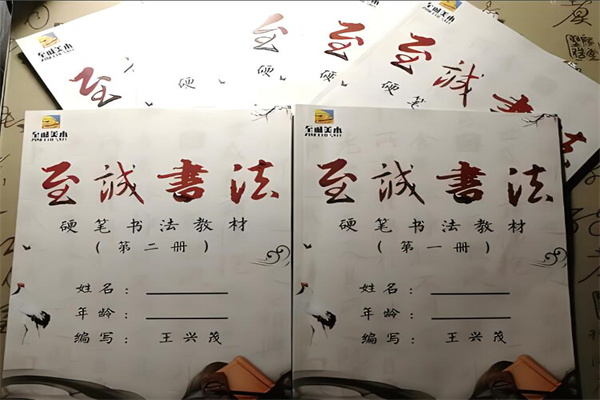 美术
至
硬
至
至
硬
至诚書法
硬笔
美术
至诚書法
硬笔书法教材
(第二册)
姓名:
年龄:
编写: 王兴茂
美术
至诚書法
硬笔书法教材
(第一册)
姓名:
年龄:
编写: 王兴茂